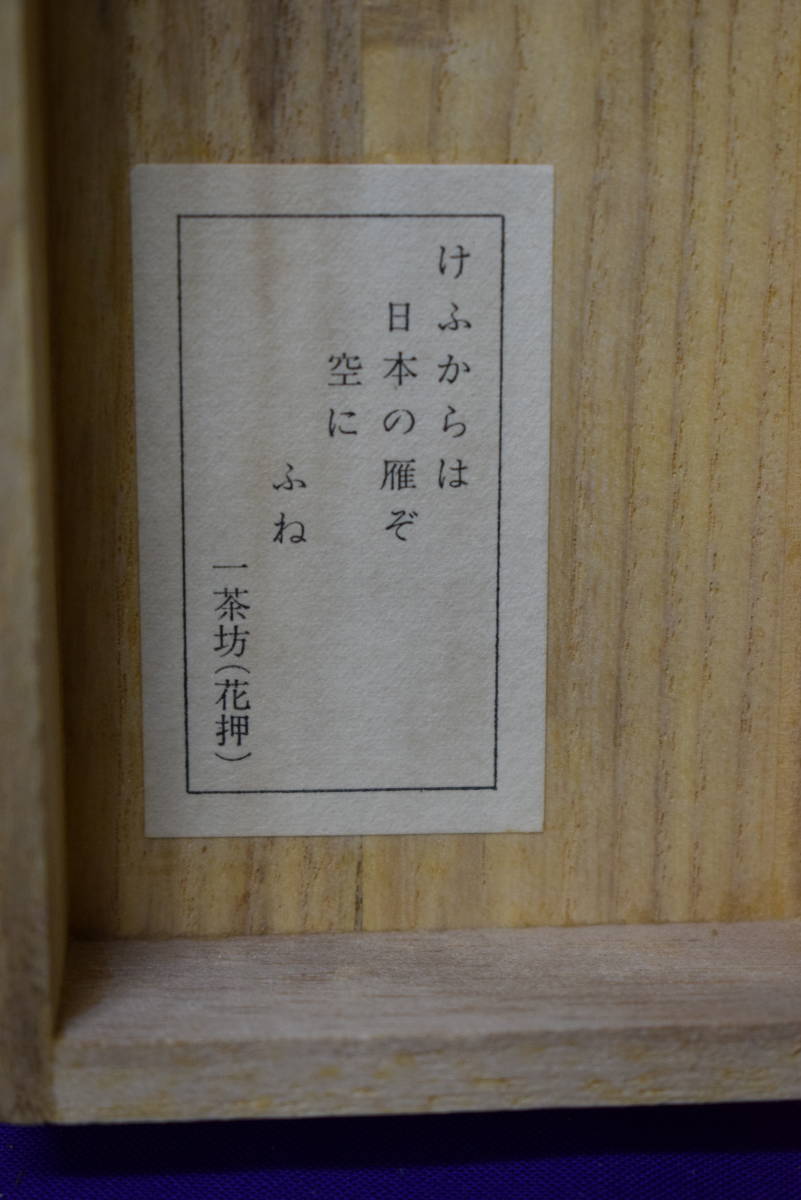 けふからは
日本の雁ぞ
空に
ふね
一茶坊(花押)